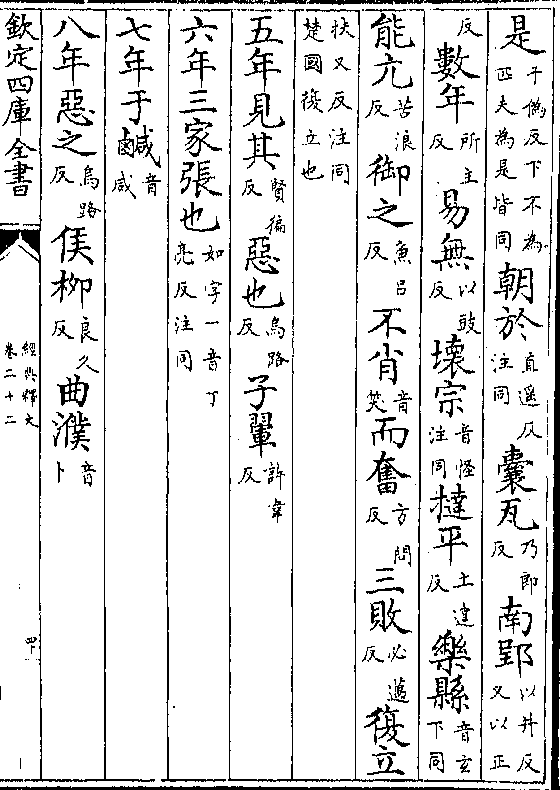 是于偽反下不為匹夫為是皆同朝於直遥反注同囊瓦乃郎反南郢以井反又以正
反數年所主反易無以豉反壞宗音怪注同撻平土達反樂縣音玄下同
能亢苦浪反御之魚呂反不肖音笑而奮方問反三敗必邁反復立
扶又反注同楚國復立也
五年見其賢徧反惡也烏路反子翬許韋反
六年三家張也如字一音丁亮反注同
七年于鹹音咸
八年惡之烏路反侯柳良久反曲濮音卜
欽定四庫全書
經典釋文
卷二十二